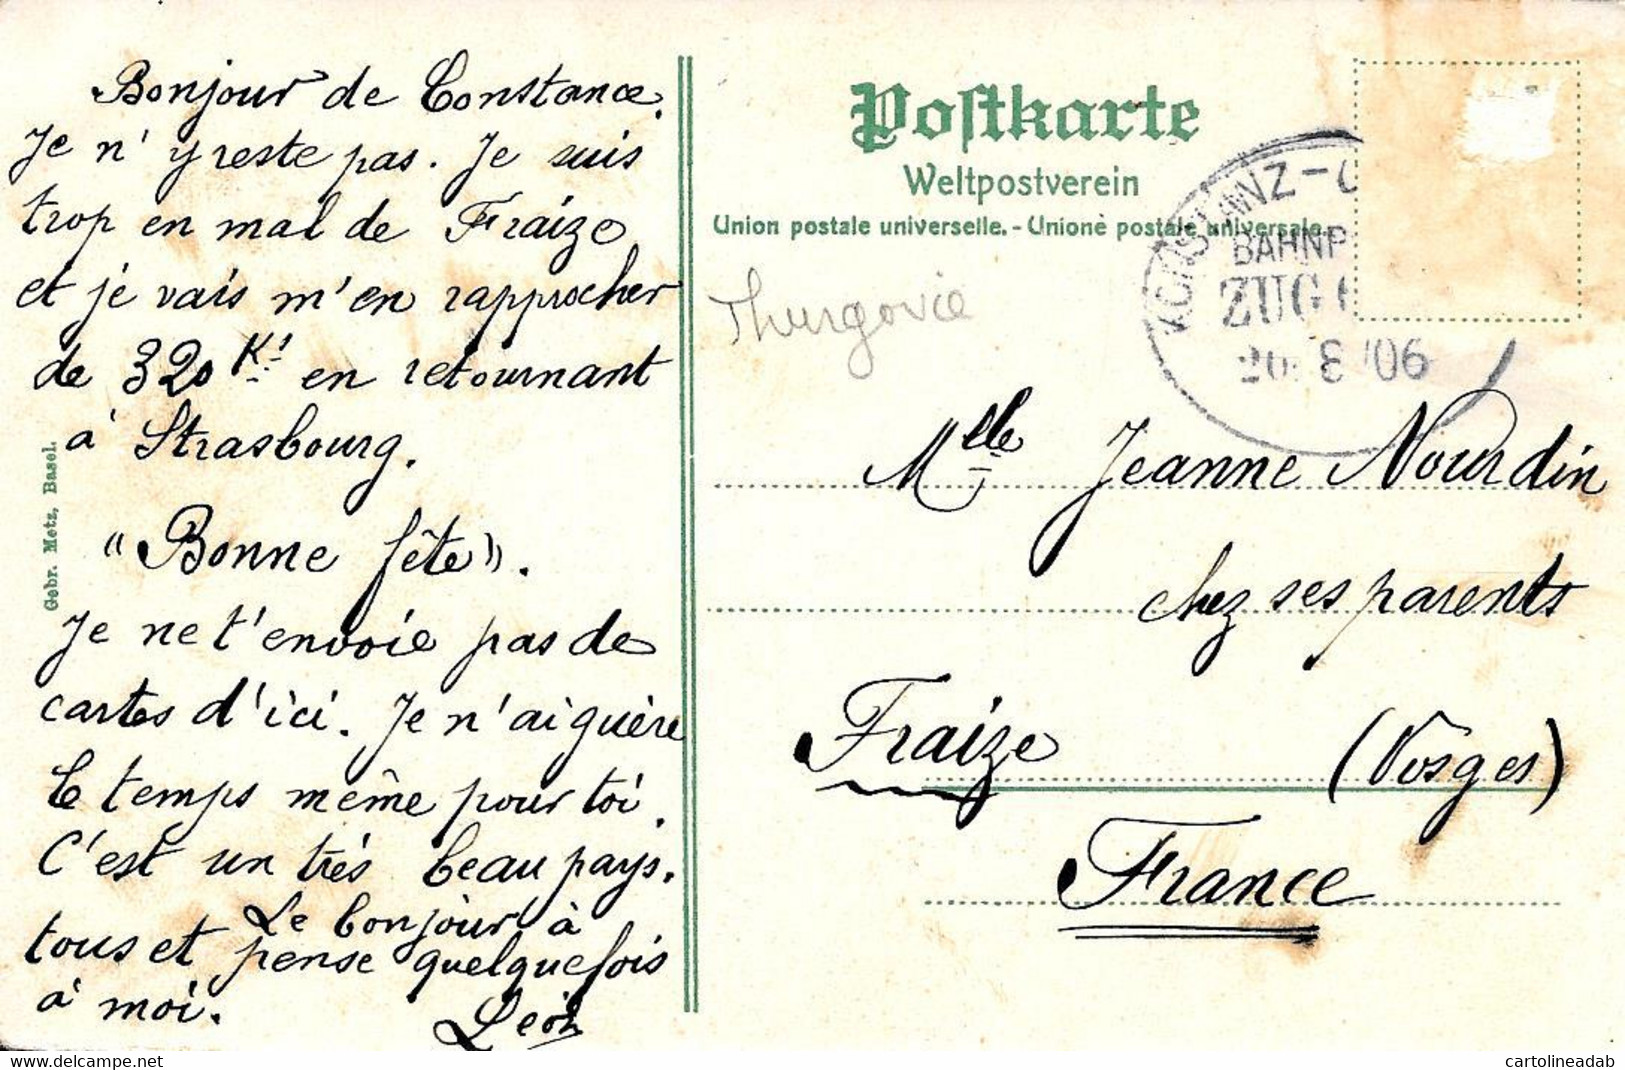 Bonjour de Constance.
Je n'y reste pas. Je suis
trop en mal de Fraize
et je vais m'en rapprocher
de 320 K! en retournant
à Strasbourg.
"Bonne fête".
Je ne t'envoie pas de
cartes d'ici. Je n'ai guère
le temps même pour toi.
C'est un très beau pays.
Le bonjour à
tous et pense quelquefois
à moi.
Léon
Gebr. Metz, Basel.
Postkarte
Weltpostverein
Union postale universelle. - Unionè postale universale.
Thurgovie
KONSTANZ -
BAHNP
ZUG
8 06
Melle Jeanne Nourdin
chez ses parents
Fraize (Vosges)
France
delcampe.net
cartolineadab